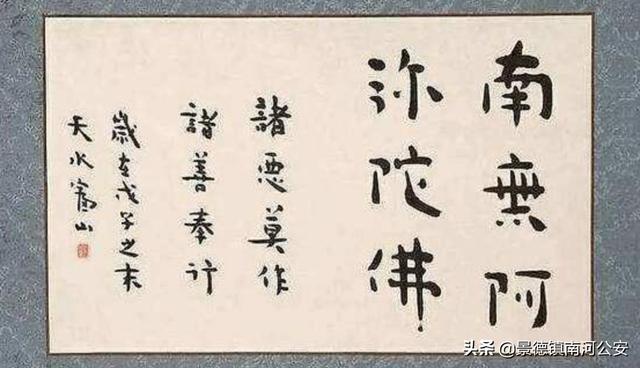 南無阿
弥陀佛
諸悪莫作
諸善奉行
歳在戊子之末
天水寓山
头条 @景德镇南河公安